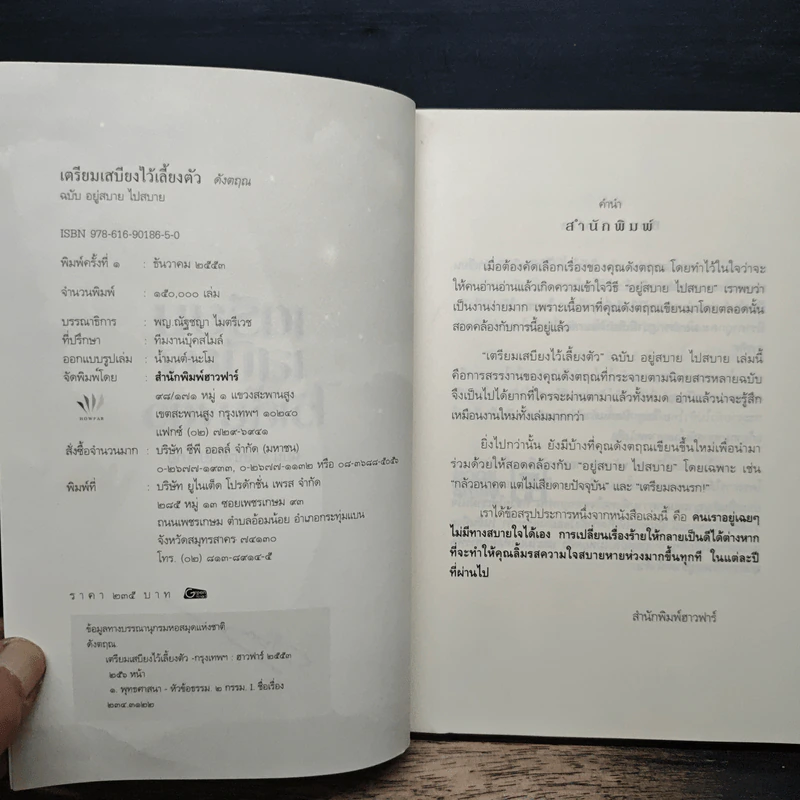 เตรียมเสบียงไว้เลี้ยงตัว ดังตฤณ
ฉบับ อยู่สบาย ไปสบาย
ISBN 978-616-90186-5-0
พิมพ์ครั้งที่ ๑ : ธันวาคม ๒๕๕๓
จำนวนพิมพ์ : ๑๕๐,๐๐๐ เล่ม
บรรณาธิการ : พญ.ณัฐชญา ไมตรีเวช
ที่ปรึกษา : ทีมงานบุ๊คสไมล์
ออกแบบรูปเล่ม : น้ำมนต์-นะโม
จัดพิมพ์โดย : สำนักพิมพ์ฮาวฟาร์
๙๘/๑๗๑ หมู่ ๑ แขวงสะพานสูง
เขตสะพานสูง กรุงเทพฯ ๑๐๒๔๐
HOWFAR
แฟกซ์ (๐๒) ๗๒๙-๖๙๔๑
สั่งซื้อจำนวนมาก : บริษัท ซีพี ออลล์ จำกัด (มหาชน)
๐-๒๖๗๗-๑๙๓๓, ๐-๒๖๗๗-๑๑๓๒ หรือ ๐๘-๓๖๘๘-๕๐๕๖
พิมพ์ที่ : บริษัท ยูไนเต็ด โปรดักชั่น เพรส จำกัด
๒๘๕ หมู่ ๑๓ ซอยเพชรเกษม ๙๓
ถนนเพชรเกษม ตำบลอ้อมน้อย อำเภอกระทุ่มแบน
จังหวัดสมุทรสาคร ๗๔๑๓๐
โทร. (๐๒) ๘๑๓-๘๙๑๔-๕
ราคา ๒๓๕ บาท
ข้อมูลทางบรรณานุกรมหอสมุดแห่งชาติ
ดังตฤณ
เตรียมเสบียงไว้เลี้ยงตัว -กรุงเทพฯ : ฮาวฟาร์ ๒๕๕๓
๒๕๖ หน้า
๑. พุทธศาสนา - หัวข้อธรรม. ๒ กรรม. I. ชื่อเรื่อง
๒๙๔.๓๑๒๒
คำนำ
สำนักพิมพ์
เมื่อต้องคัดเลือกเรื่องของคุณดังตฤณ โดยทำไว้ในใจว่าจะ
ให้คนอ่านอ่านแล้วเกิดความเข้าใจวิธี “อยู่สบาย ไปสบาย” เราพบว่า
เป็นงานง่ายมาก เพราะเนื้อหาที่คุณดังตฤณเขียนมาโดยตลอดนั้น
สอดคล้องกับการนี้อยู่แล้ว
“เตรียมเสบียงไว้เลี้ยงตัว” ฉบับ อยู่สบาย ไปสบาย เล่มนี้
คือการสรรงานของคุณดังตฤณที่กระจายตามนิตยสารหลายฉบับ
จึงเป็นไปได้ยากที่ใครจะผ่านตามาแล้วทั้งหมด อ่านแล้วน่าจะรู้สึก
เหมือนงานใหม่ทั้งเล่มมากกว่า
ยิ่งไปกว่านั้น ยังมีบ้างที่คุณดังตฤณเขียนขึ้นใหม่เพื่อนำมา
ร่วมด้วยให้สอดคล้องกับ “อยู่สบาย ไปสบาย” โดยเฉพาะ เช่น
“กลัวอนาคต แต่ไม่เสียดายปัจจุบัน” และ “เตรียมลงนรก!”
เราได้ข้อสรุปประการหนึ่งจากหนังสือเล่มนี้ คือ คนเราอยู่เฉยๆ
ไม่มีทางสบายใจได้เอง การเปลี่ยนเรื่องร้ายให้กลายเป็นดีได้ต่างหาก
ที่จะทำให้คุณลิ้มรสความใจสบายหายห่วงมากขึ้นทุกที ในแต่ละปี
ที่ผ่านไป
สำนักพิมพ์ฮาวฟาร์